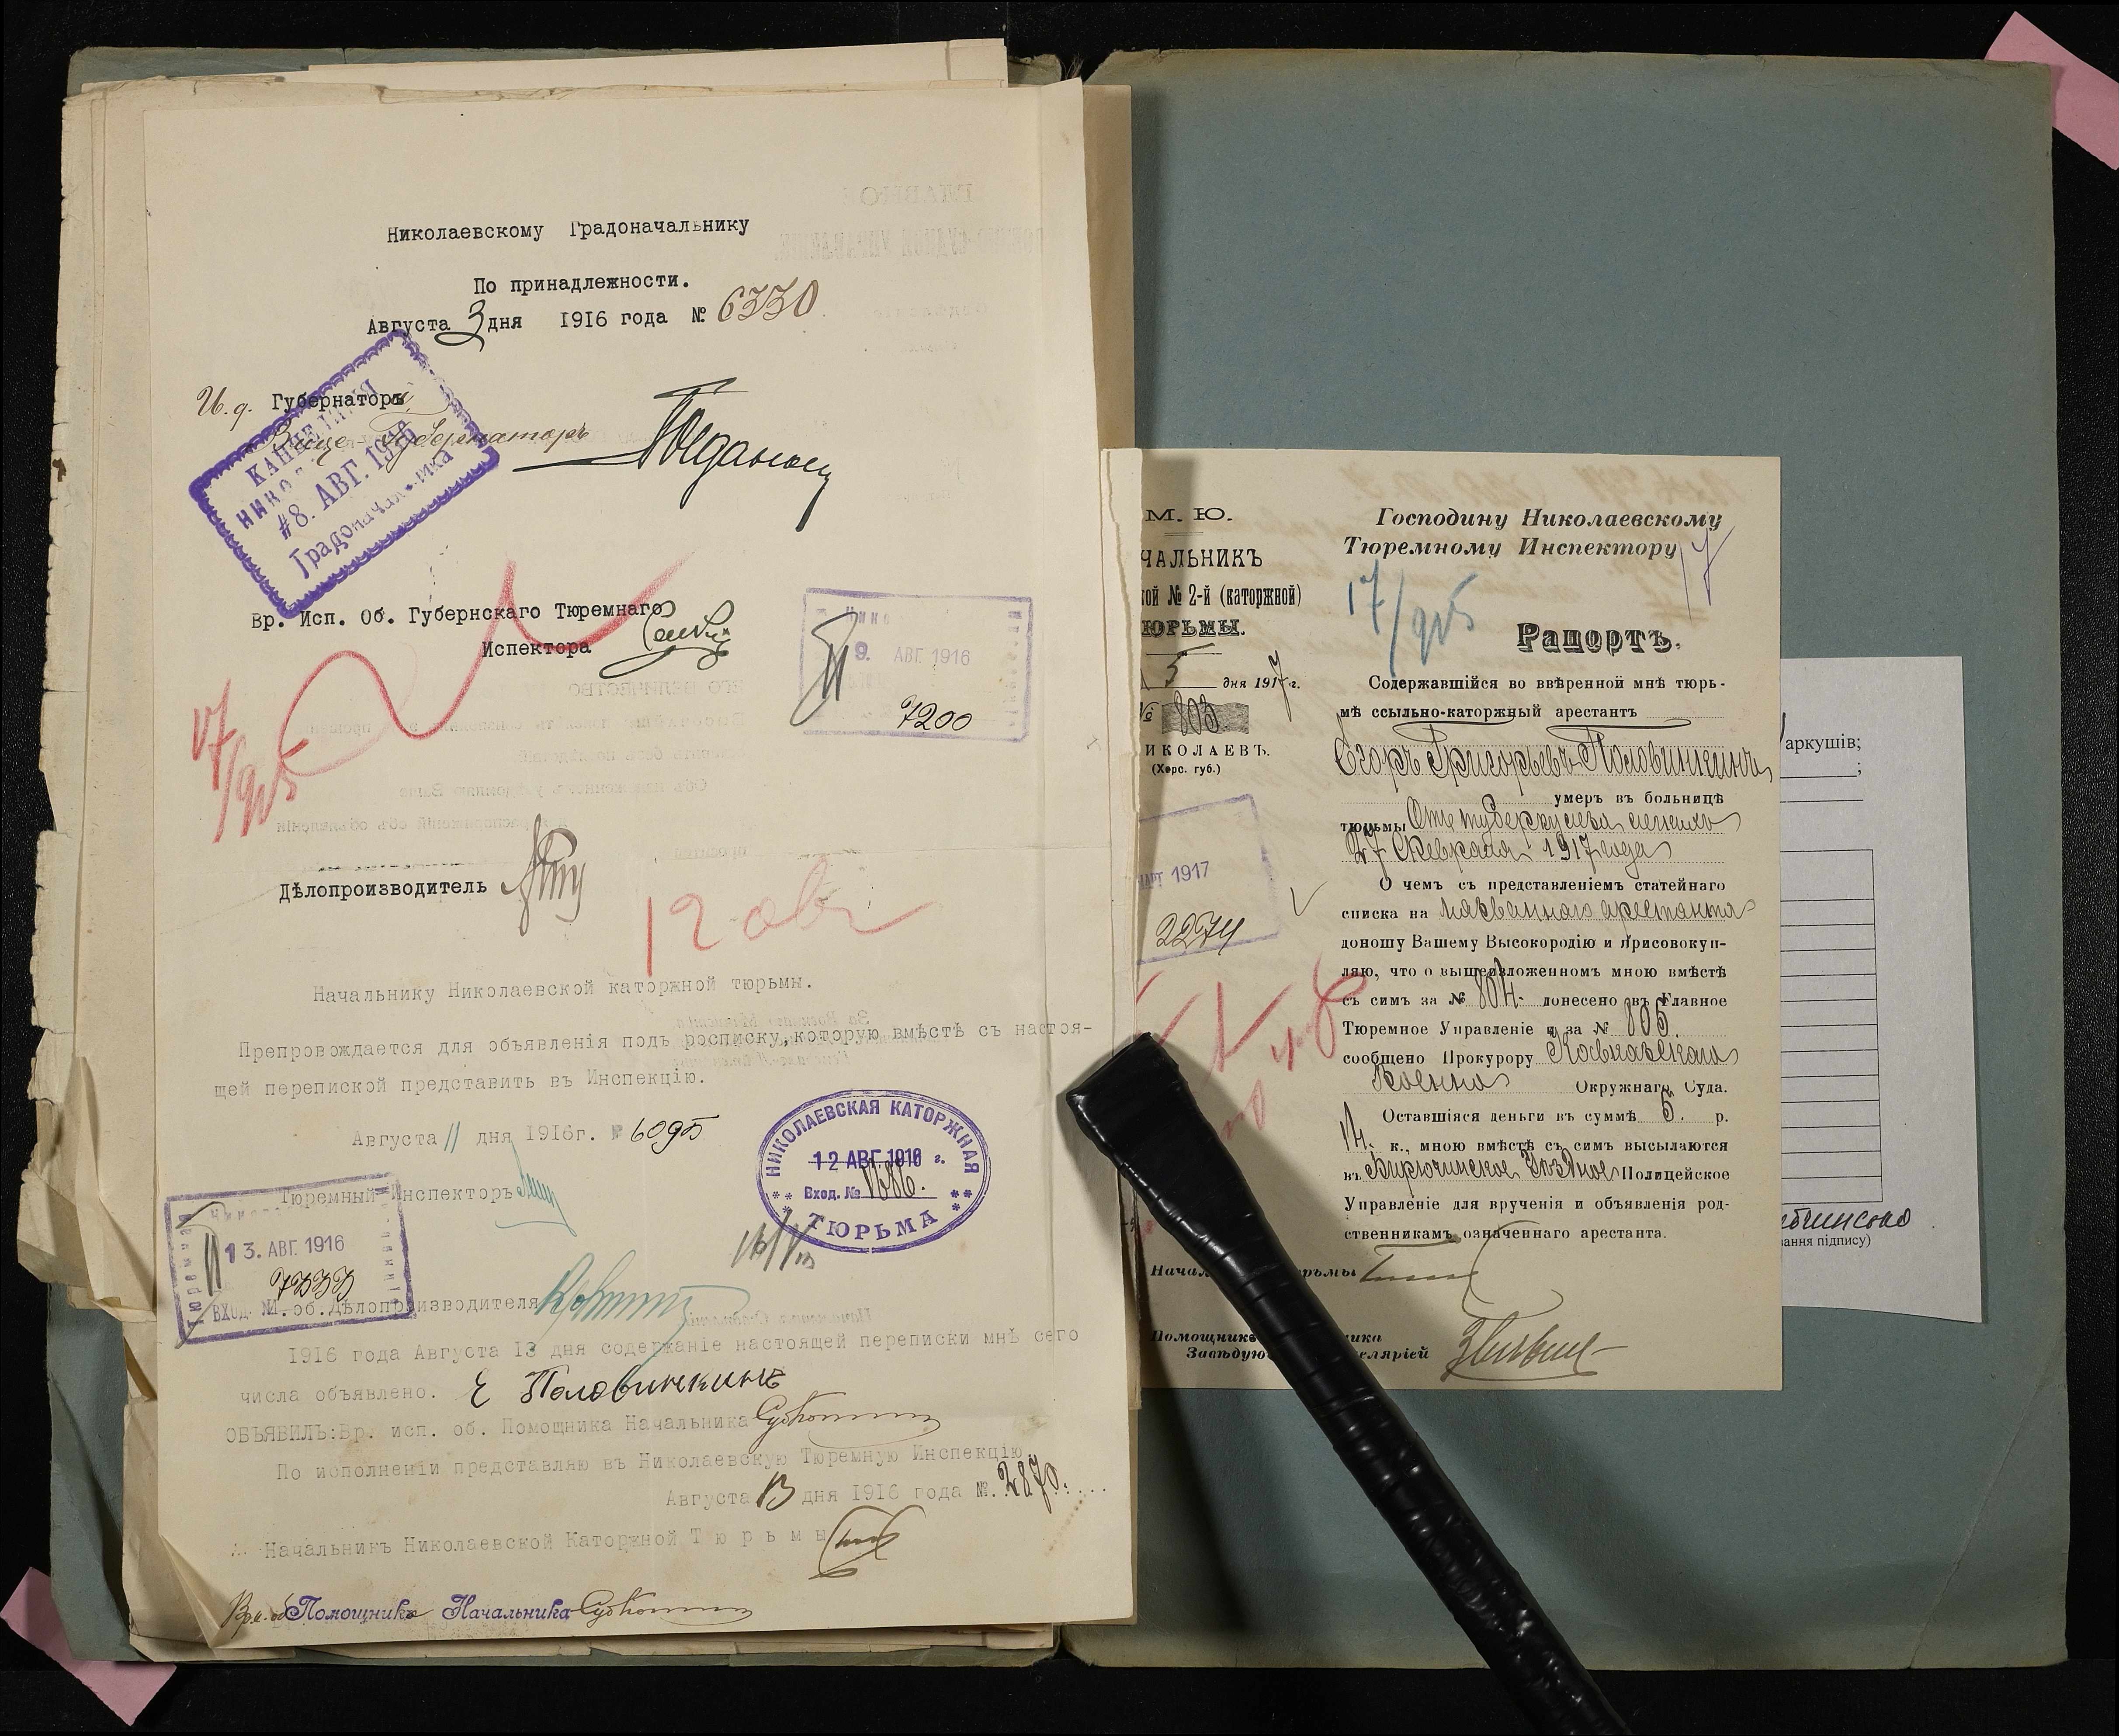 Николаевскому Градоначальнику
По принадлежности.
Августа 3 дня 1916 года № 6330
И. д. Губернаторъ
Вице-Губернаторъ
КАНЦЕЛЯРІЯ
8. АВГ. 1916
Градоначальника
Вр. Исп. Об. Губернскаго Тюремнаго
Испектора
9. АВГ. 1916
7200
17/915
Дѣлопроизводитель
12 авг
Начальнику Николаевской каторжной тюрьмы.
Препровождается для объявленія подъ росписку, которую вмѣстѣ съ настоя-
щей перепиской представить въ Инспекцію.
Августа 11 дня 1916г. № 6095
НИКОЛАЕВСКАЯ КАТОРЖНАЯ
12 АВГ. 1916 г.
Вход. №
ТЮРЬМА
Тюремный Инспекторъ
13. АВГ. 1916
7333
ВХОД. №
И. об. Дѣлопроизводителя
1916 года Августа 13 дня содержаніе настоящей переписки мнѣ сего
числа объявлено. Е Половинкинъ
ОБЪЯВИЛЪ: Вр. исп. об. Помощника Начальника
По исполненіи представляю въ Николаевскую Тюремную Инспекцію
Августа 13 дня 1916 года №. 2870.
Начальникъ Николаевской Каторжной Тюрьмы
Вр. и. об Помощника Начальника
М. Ю.
ЧАЛЬНИКЪ
ой № 2-й (каторжной)
ЮРЬМЫ.
5 дня 1917 г.
№ 803.
ИКОЛАЕВЪ.
(Херс. губ.)
МАРТ 1917
2274
Господину Николаевскому
Тюремному Инспектору
17/915
Рапортъ.
Содержавшійся во ввѣренной мнѣ тюрь-
мѣ ссыльно-каторжный арестантъ
Егоръ Григорьевъ Половинкинъ
умеръ въ больницѣ
тюрьмы Отъ туберкулеза легкихъ
27 Февраля 1917 года
О чемъ съ представленіемъ статейнаго
списка на названнаго арестанта
доношу Вашему Высокородію и присовокуп-
ляю, что о вышеизложенномъ мною вмѣстѣ
съ симъ за № 804. донесено въ Главное
Тюремное Управленіе и за № 805.
сообщено Прокурору Кавказскаго
Военно Окружнаго Суда.
Оставшіяся деньги въ суммѣ 5. р.
14. к., мною вмѣстѣ съ симъ высылаются
въ Бирюченское Уѣздное Полицейское
Управленіе для врученія и объявленія род-
ственникамъ означеннаго арестанта.
Начал рьмы
Помощникъ ника
Завѣдую елярiей
аркушів;
вання підпису)